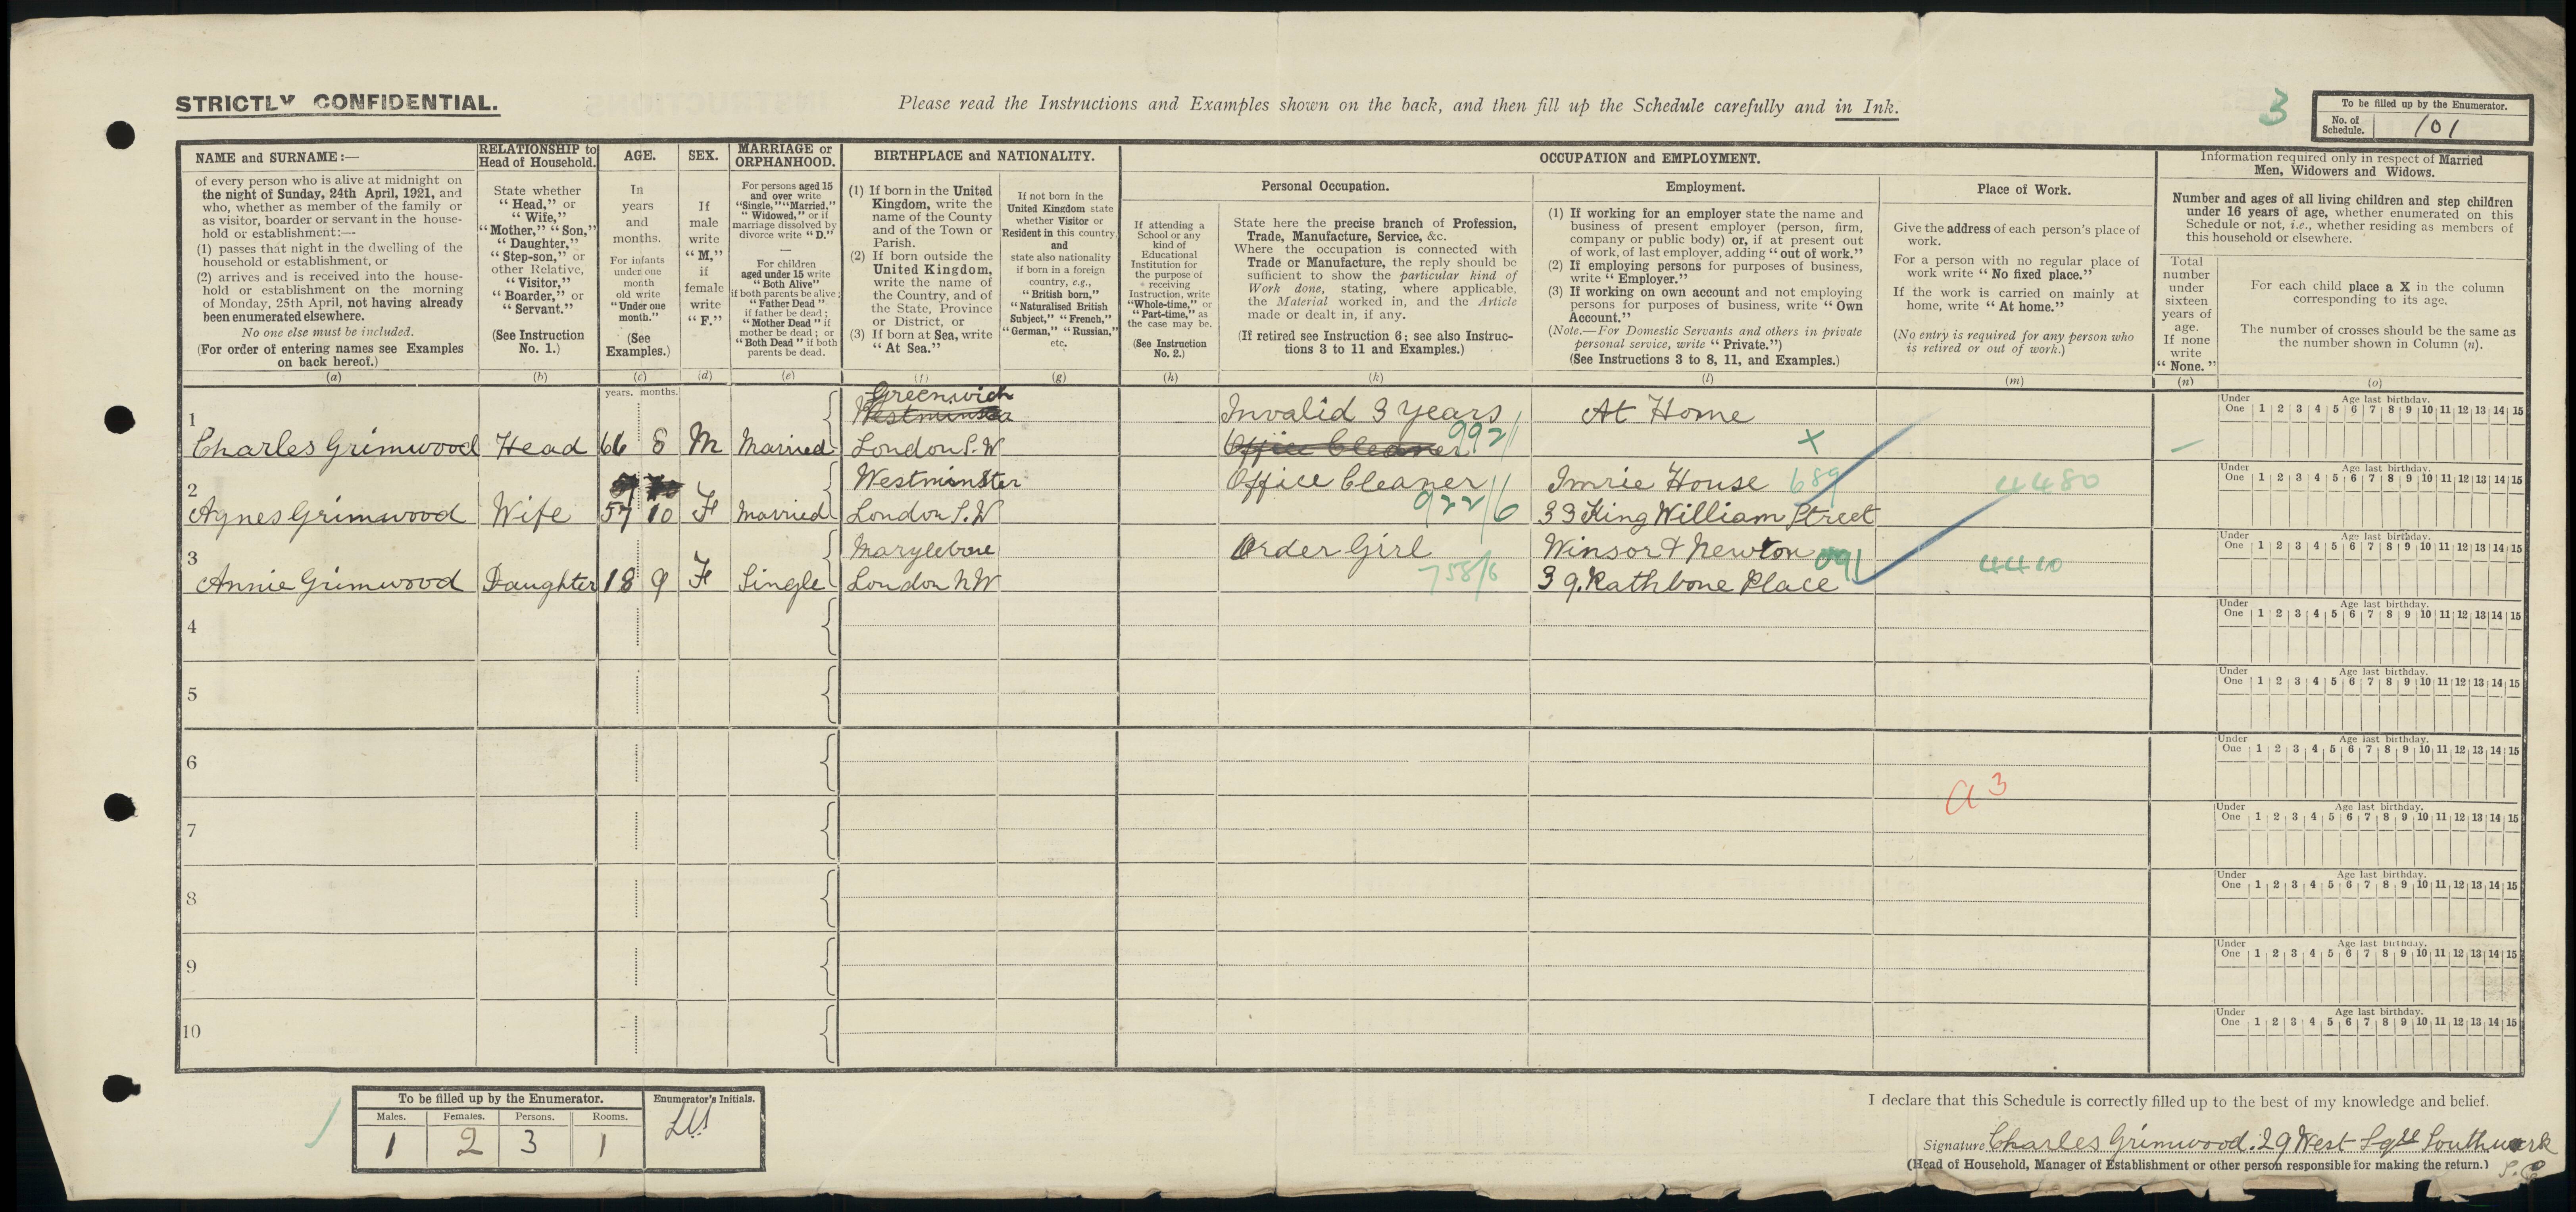 STRICTLY CONFIDENTIAL.
Please read the Instructions and Examples shown on the back, and then fill up the Schedule carefully and in Ink.
3
To be filled up by the Enumerator.
No. of Schedule. 101
NAME and SURNAME:—
of every person who is alive at midnight on
the night of Sunday, 24th April, 1921, and
who, whether as member of the family or
as visitor, boarder or servant in the house-
hold or establishment:—
(1) passes that night in the dwelling of the
household or establishment, or
(2) arrives and is received into the house-
hold or establishment on the morning
of Monday, 25th April, not having already
been enumerated elsewhere.
No one else must be included.
(For order of entering names see Examples
on back hereof.)
(a)
RELATIONSHIP to
Head of Household.
State whether
"Head," or
"Wife,"
"Mother," "Son,"
"Daughter,"
"Step-son," or
other Relative,
"Visitor,"
"Boarder," or
"Servant."
(See Instruction
No. 1.)
(b)
AGE.
In
years
and
months.
For infants
under one
month
old write
"Under one
month."
(See
Examples.)
(c)
SEX.
If
male
write
"M,"
if
female
write
"F."
(d)
MARRIAGE or
ORPHANHOOD.
For persons aged 15
and over write
"Single," "Married,"
"Widowed," or if
marriage dissolved by
divorce write "D."
For children
aged under 15 write
"Both Alive"
if both parents be alive;
"Father Dead"
if father be dead;
"Mother Dead" if
mother be dead; or
"Both Dead" if both
parents be dead.
(e)
BIRTHPLACE and NATIONALITY.
(1) If born in the United
Kingdom, write the
name of the County
and of the Town or
Parish.
(2) If born outside the
United Kingdom,
write the name of
the Country, and of
the State, Province
or District, or
(3) If born at Sea, write
"At Sea."
(f)
If not born in the
United Kingdom state
whether Visitor or
Resident in this country,
and
state also nationality
if born in a foreign
country, e.g.,
"British born,"
"Naturalised British
Subject," "French,"
"German," "Russian,"
etc.
(g)
OCCUPATION and EMPLOYMENT.
If attending a
School or any
kind of
Educational
Institution for
the purpose of
receiving
Instruction, write
"Whole-time," or
"Part-time," as
the case may be.
(See Instruction
No. 2.)
(h)
Personal Occupation.
State here the precise branch of Profession,
Trade, Manufacture, Service, &c.
Where the occupation is connected with
Trade or Manufacture, the reply should be
sufficient to show the particular kind of
Work done, stating, where applicable,
the Material worked in, and the Article
made or dealt in, if any.
(If retired see Instruction 6; see also Instruc-
tions 3 to 11 and Examples.)
(k)
Employment.
(1) If working for an employer state the name and
business of present employer (person, firm,
company or public body) or, if at present out
of work, of last employer, adding "out of work."
(2) If employing persons for purposes of business,
write "Employer."
(3) If working on own account and not employing
persons for purposes of business, write "Own
Account."
(Note.—For Domestic Servants and others in private
personal service, write "Private.")
(See Instructions 3 to 8, 11, and Examples.)
(l)
Place of Work.
Give the address of each person's place of
work.
For a person with no regular place of
work write "No fixed place."
If the work is carried on mainly at
home, write "At home."
(No entry is required for any person who
is retired or out of work.)
(m)
Information required only in respect of Married
Men, Widowers and Widows.
Number and ages of all living children and step children
under 16 years of age, whether enumerated on this
Schedule or not, i.e., whether residing as members of
this household or elsewhere.
Total
number
under
sixteen
years of
age.
If none
write
"None."
(n)
For each child place a X in the column
corresponding to its age.
The number of crosses should be the same as
the number shown in Column (n).
(o)
years. months.
Under One Age last birthday. 1 2 3 4 5 6 7 8 9 10 11 12 13 14 15
Greenwich
Westminster Invalid 3 years At Home
1 Charles Grimwood Head 66 8 M Married London S.W Office Cleaner 992/ X —
Under One Age last birthday. 1 2 3 4 5 6 7 8 9 10 11 12 13 14 15
Westminster Office Cleaner Imrie House 689 4480
2 Agnes Grimwood Wife 57 10 F Married London S.W 922/6 33 King William Street
Under One Age last birthday. 1 2 3 4 5 6 7 8 9 10 11 12 13 14 15
Marylebone Order Girl Winsor & Newton 091 4410
3 Annie Grimwood Daughter 18 9 F Single London N W 758/6 39. Rathbone Place
4 Under One Age last birthday. 1 2 3 4 5 6 7 8 9 10 11 12 13 14 15
5 Under One Age last birthday. 1 2 3 4 5 6 7 8 9 10 11 12 13 14 15
6 Under One Age last birthday. 1 2 3 4 5 6 7 8 9 10 11 12 13 14 15
a 3
7 Under One Age last birthday. 1 2 3 4 5 6 7 8 9 10 11 12 13 14 15
8 Under One Age last birthday. 1 2 3 4 5 6 7 8 9 10 11 12 13 14 15
9 Under One Age last birthday. 1 2 3 4 5 6 7 8 9 10 11 12 13 14 15
10 Under One Age last birthday. 1 2 3 4 5 6 7 8 9 10 11 12 13 14 15
To be filled up by the Enumerator.
Males. Females. Persons. Rooms.
1 2 3 1
Enumerator's Initials.
I declare that this Schedule is correctly filled up to the best of my knowledge and belief.
Signature Charles Grimwood. 29 West Sqre Southwark
S.E
(Head of Household, Manager of Establishment or other person responsible for making the return.)